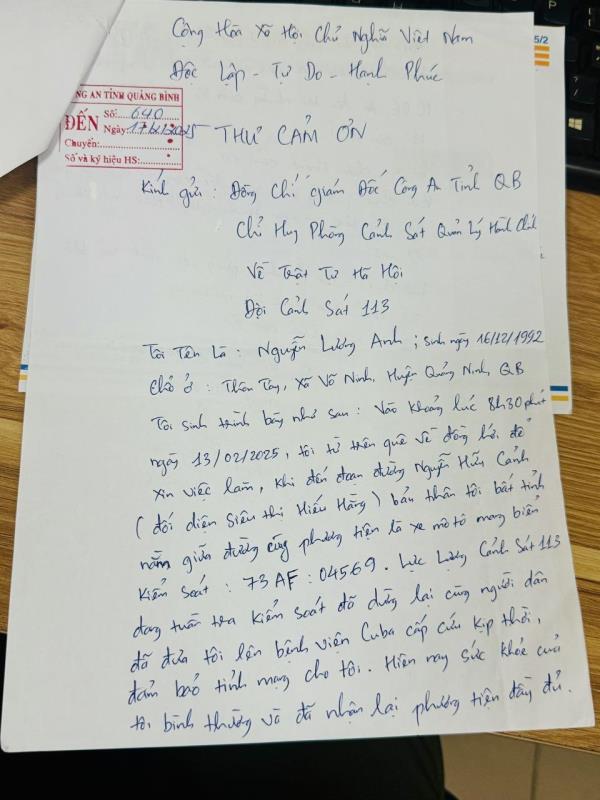 Cộng Hòa Xã Hội Chủ Nghĩa Việt Nam
Độc Lập - Tự Do - Hạnh Phúc
5/2
NG AN TỈNH QUẢNG BÌNH
ĐẾN
Số: 640
Ngày: 17/2/2025
Chuyển:
Số và ký hiệu HS:
THƯ CẢM ƠN
Kính gửi: Đồng Chí giám Đốc Công An Tỉnh QB
Chỉ Huy Phòng Cảnh Sát Quản Lý Hành Chính
Về Trật Tự Hã Hội
Đội Cảnh Sát 113
Tôi Tên Là: Nguyễn Lương Anh; sinh ngày 16/12/1992
Chỗ ở: Thôn Tây, Xã Võ Ninh, Huyện Quảng Ninh, QB
Tôi sinh trình bày như sau: Vào khoảng lúc 8h30 phút
ngày 13/02/2025, tôi từ trên quê về đồng hới để
xin việc làm, khi đến đoạn đường Nguyễn Hữu Cảnh
(đối diện siêu thị Hiếu Hằng) bản thân tôi bất tỉnh
nằm giữa đường cùng phương tiện là xe mô tô mang biển
kiểm soát: 73AF: 04569. Lực Lượng Cảnh Sát 113
đang tuần tra kiểm soát đã dừng lại cùng người dân
đã đưa tôi lên bệnh viện Cuba cấp cứu kịp thời,
đảm bảo tỉnh mạng cho tôi. Hiện nay sức khỏe của
tôi bình thường và đã nhận lại phương tiện đầy đủ.